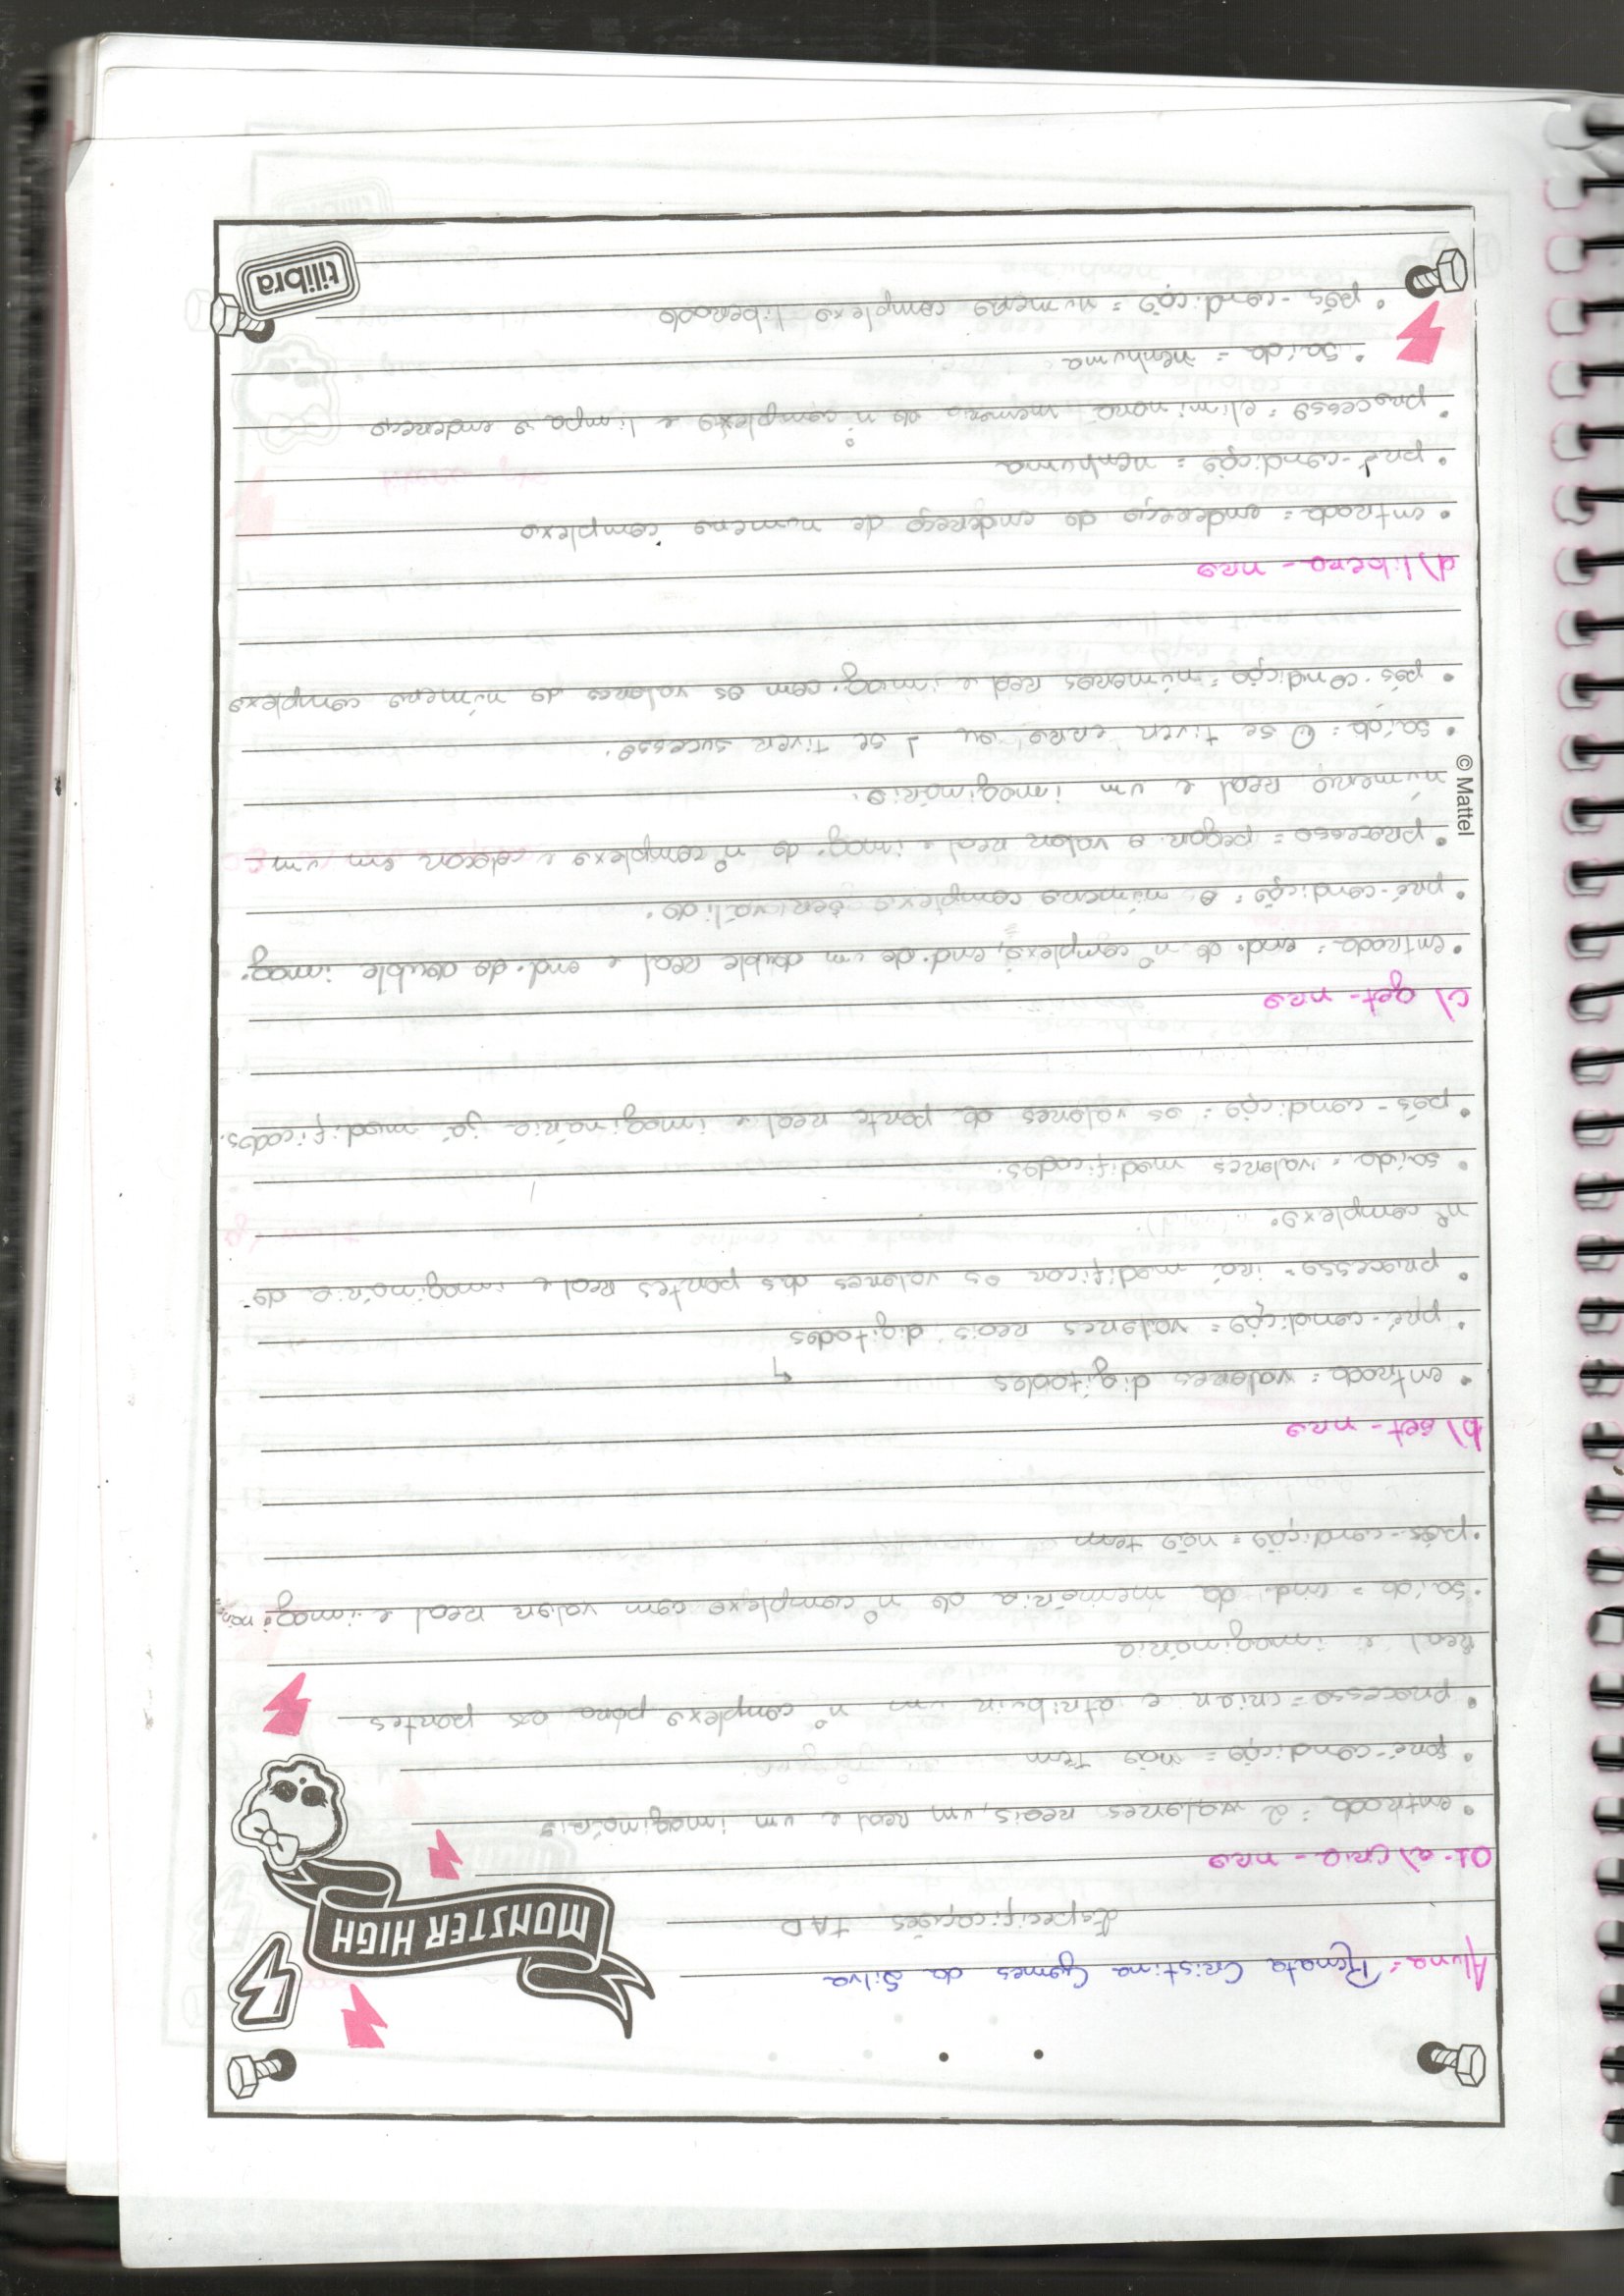 MONSTER HIGH
Aluna: Renata Cristina Gomes da Silva
Especificações TAD
01-a) cria-nro
• entrada: 2 valores reais, um real e um imaginário
• pré-condição = não tem
• processo = criar e atribuir um nº complexo para as partes
Real e imaginária
• saída = end. da memória do nº complexo com valor real e imaginário
• pós-condição = não tem
b) set-nro
• entrada: valores digitados
• pré-condição = valores reais digitados
• processo = irá modificar os valores das partes real e imaginária do
nº complexo.
• saída = valores modificados.
• pós-condição = os valores da parte real e imaginária já modificados.
c) get-nro
• entrada = end. do nº complexo, end. de um double real e end. do double imag.
• pré-condição = o número complexo ser válido.
• processo = pegar o valor real e imag. do nº complexo e colocar em um
número real e um imaginário.
• saída: 0 se tiver erro ou 1 se tiver sucesso.
• pós-condição = números real e imag. com os valores do número complexo
d) libera-nro
• entrada = endereço do endereço de número complexo
• pré-condição = nenhuma
• processo = eliminará memória do nº complexo e limpa o endereço
• saída = nenhuma
• pós-condição = número complexo liberado
© Mattel
tilibra